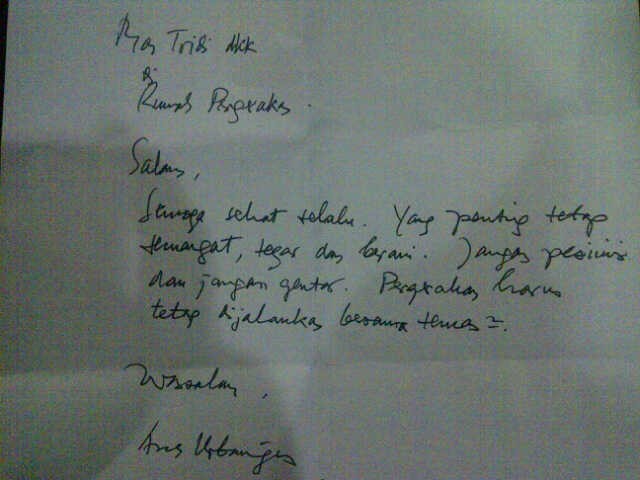 Mas Tridi dkk
di
Rumah Pergerakan.
Salam,
Semoga sehat selalu. Yang penting tetap
semangat, tegar dan berani. Jangan pesimis
dan jangan gentar. Pergerakan harus
tetap dijalankan bersama teman2.
Wassalam,
Anas Urbaningrum